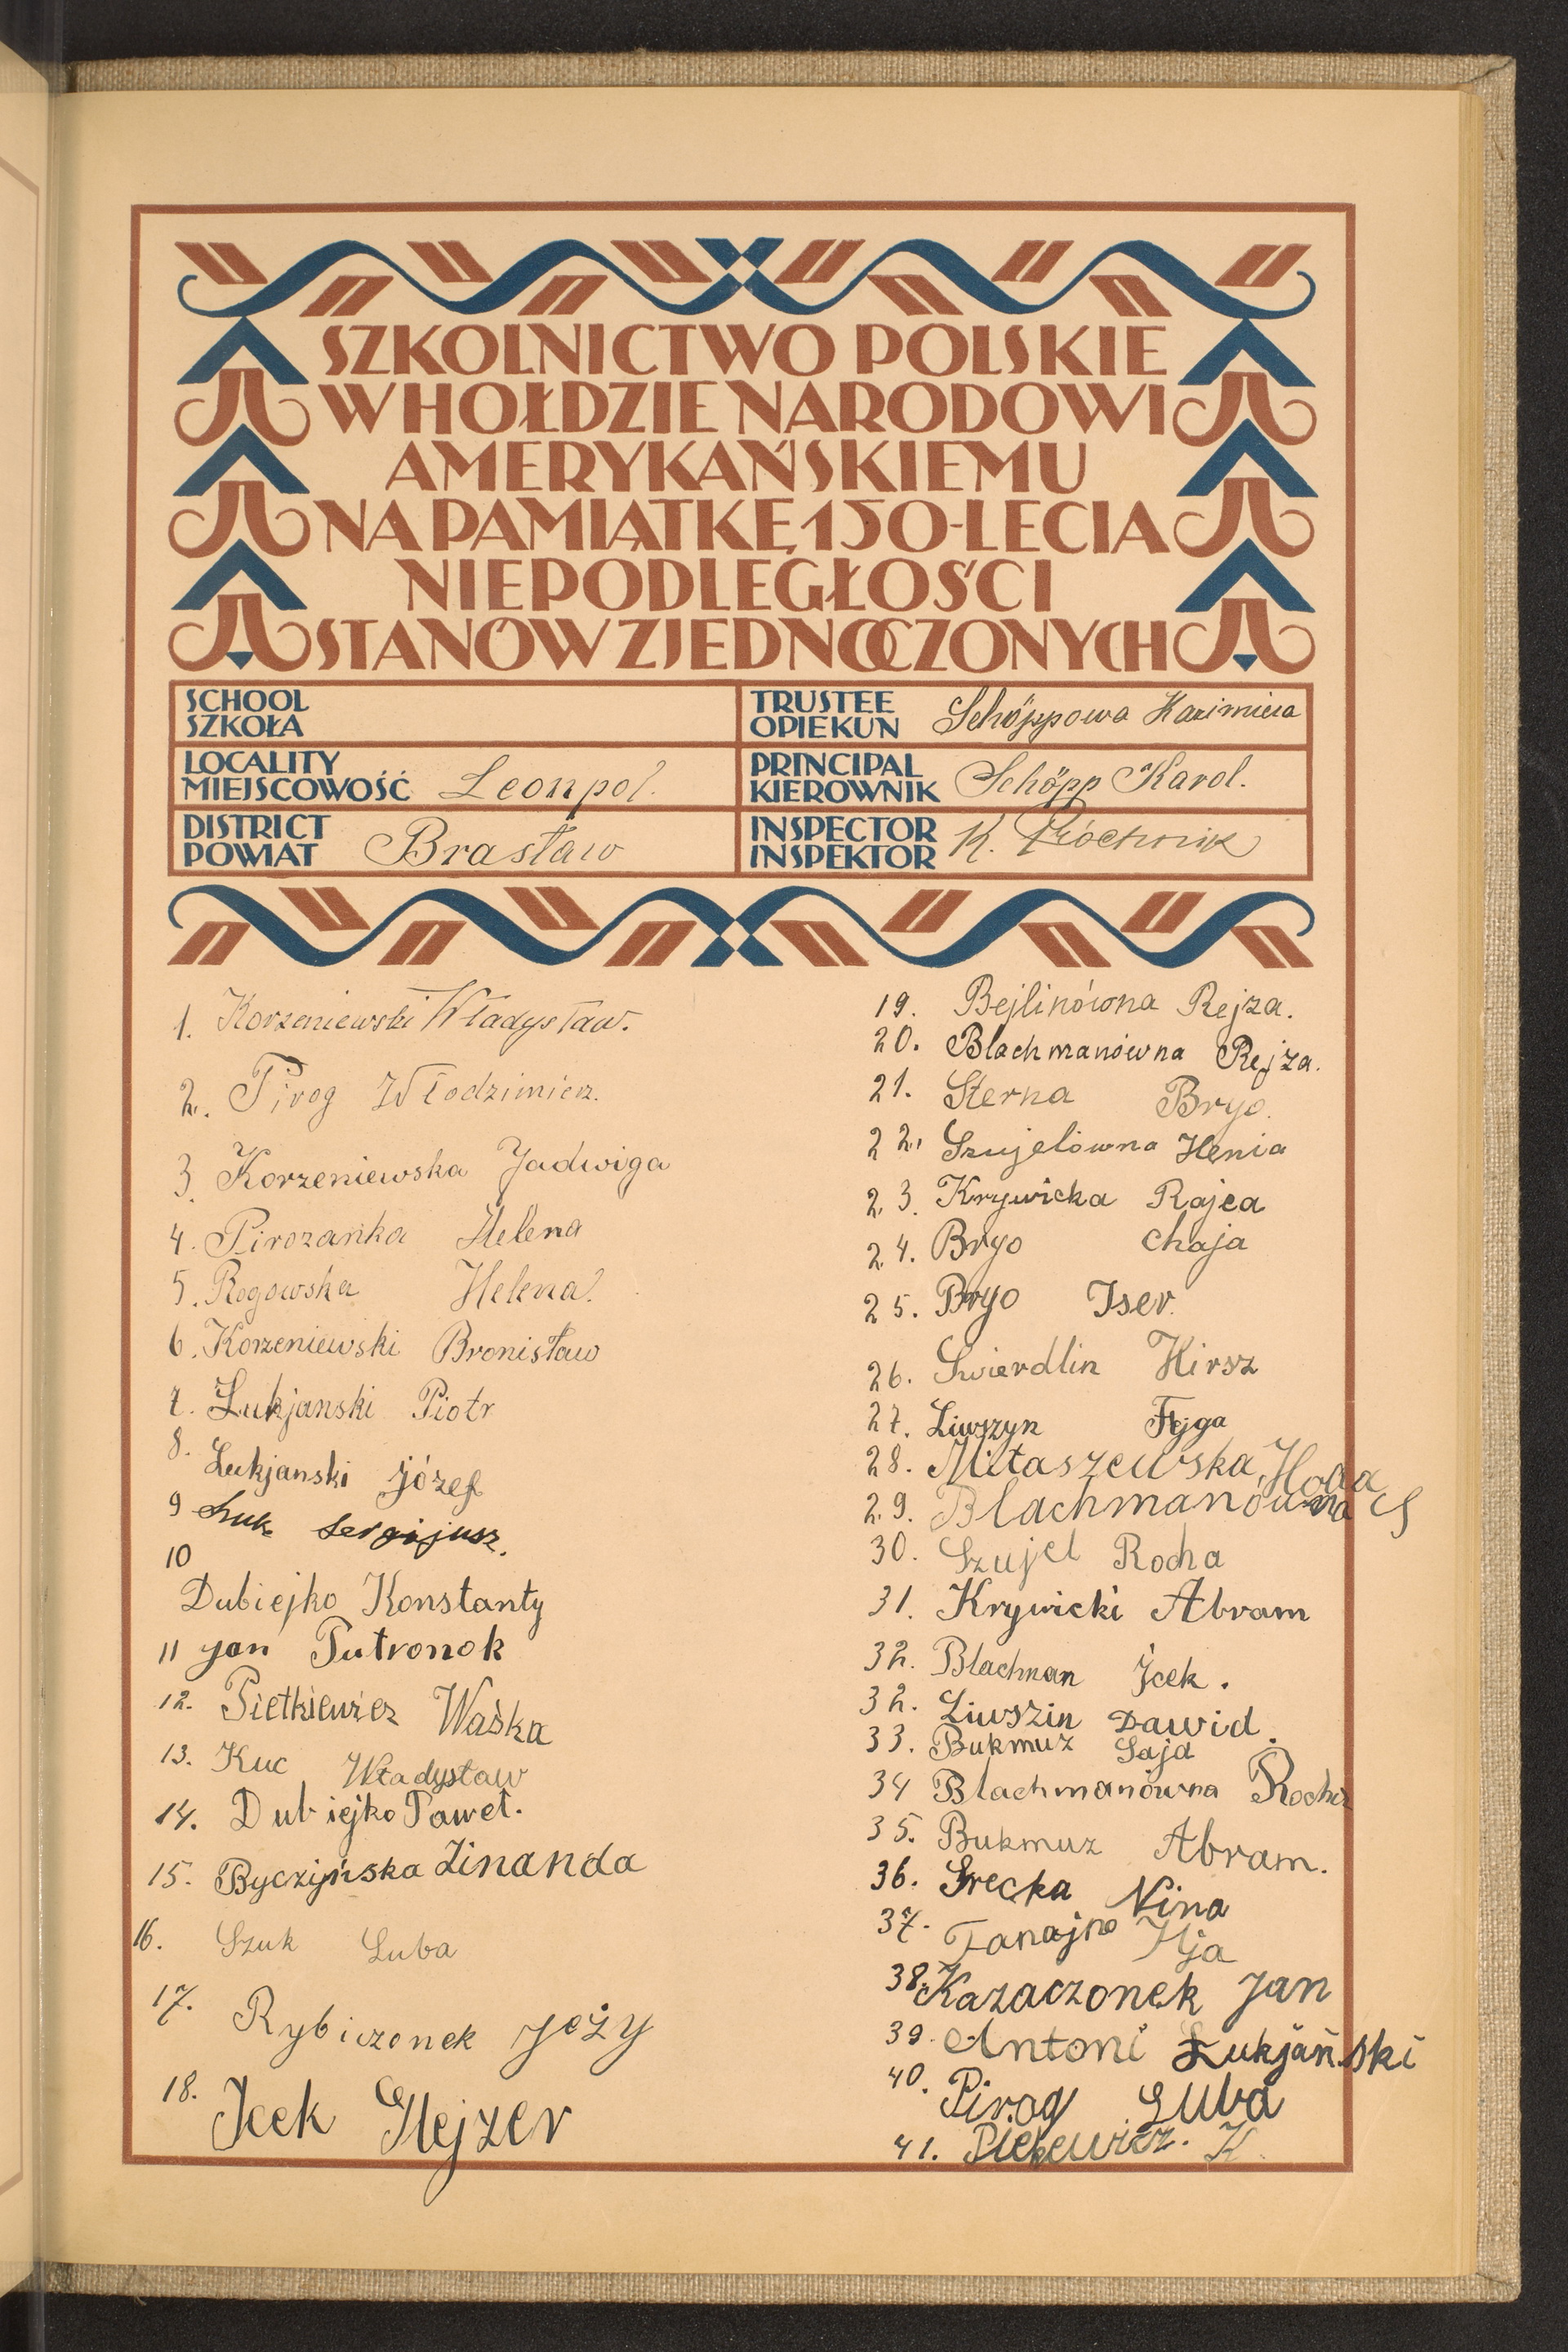 SZKOLNICTWO POLSKIE
W HOŁDZIE NARODOWI
AMERYKAŃSKIEMU
NA PAMIĄTKĘ 150-LECIA
NIEPODLEGŁOŚCI
STANÓW ZJEDNOCZONYCH
SCHOOL
SZKOŁA
TRUSTEE
OPIEKUN Schöppowa Kazimiera
LOCALITY
MIEJSCOWOŚĆ Leonpol.
PRINCIPAL
KIEROWNIK Schöpp Karol.
DISTRICT
POWIAT Brasław
INSPECTOR
INSPEKTOR K. Próchnik
1. Korzeniewski Władysław.
2. Pirog Włodzimierz.
3. Korzeniewska Jadwiga
4. Pirozanka Helena
5. Rogowska Helena.
6. Korzeniewski Bronisław
7. Łukjanski Piotr
8. Łukjanski Józef
9 Szuk Sergijusz.
10
Dubiejko Konstanty
11 Jan Putronok
12. Pietkiewicz Waśka
13. Kuc Władysław
14. Dubiejko Paweł.
15. Byczyńska Zinanda
16. Szuk Luba
17. Rybiczonek Jeży
18. Icek Hejzer
19. Bejlinówna Rejza.
20. Blachmanówna Rejza.
21. Sterna Bryo.
22. Szujelówna Henia
23. Krywicka Rajca
24. Bryo Chaja
25. Bryo Iser.
26. Swierdlin Hirsz
27. Liwszyn Fejga
28. Mitaszewska
29. Blachmanówna
30. Szujel Rocha
31. Krywicki Abram
32. Blachman Jcek.
32. Liwszin Dawid.
33. Bukmuz Saja
34 Blachmanówna Rocha
35. Bukmuz Abram.
36. Srecka Nina
37. Tanajno Ilja
38. Kazaczonek Jan
39. Antoni Łukjański
40. Pirog Luba
41. K.